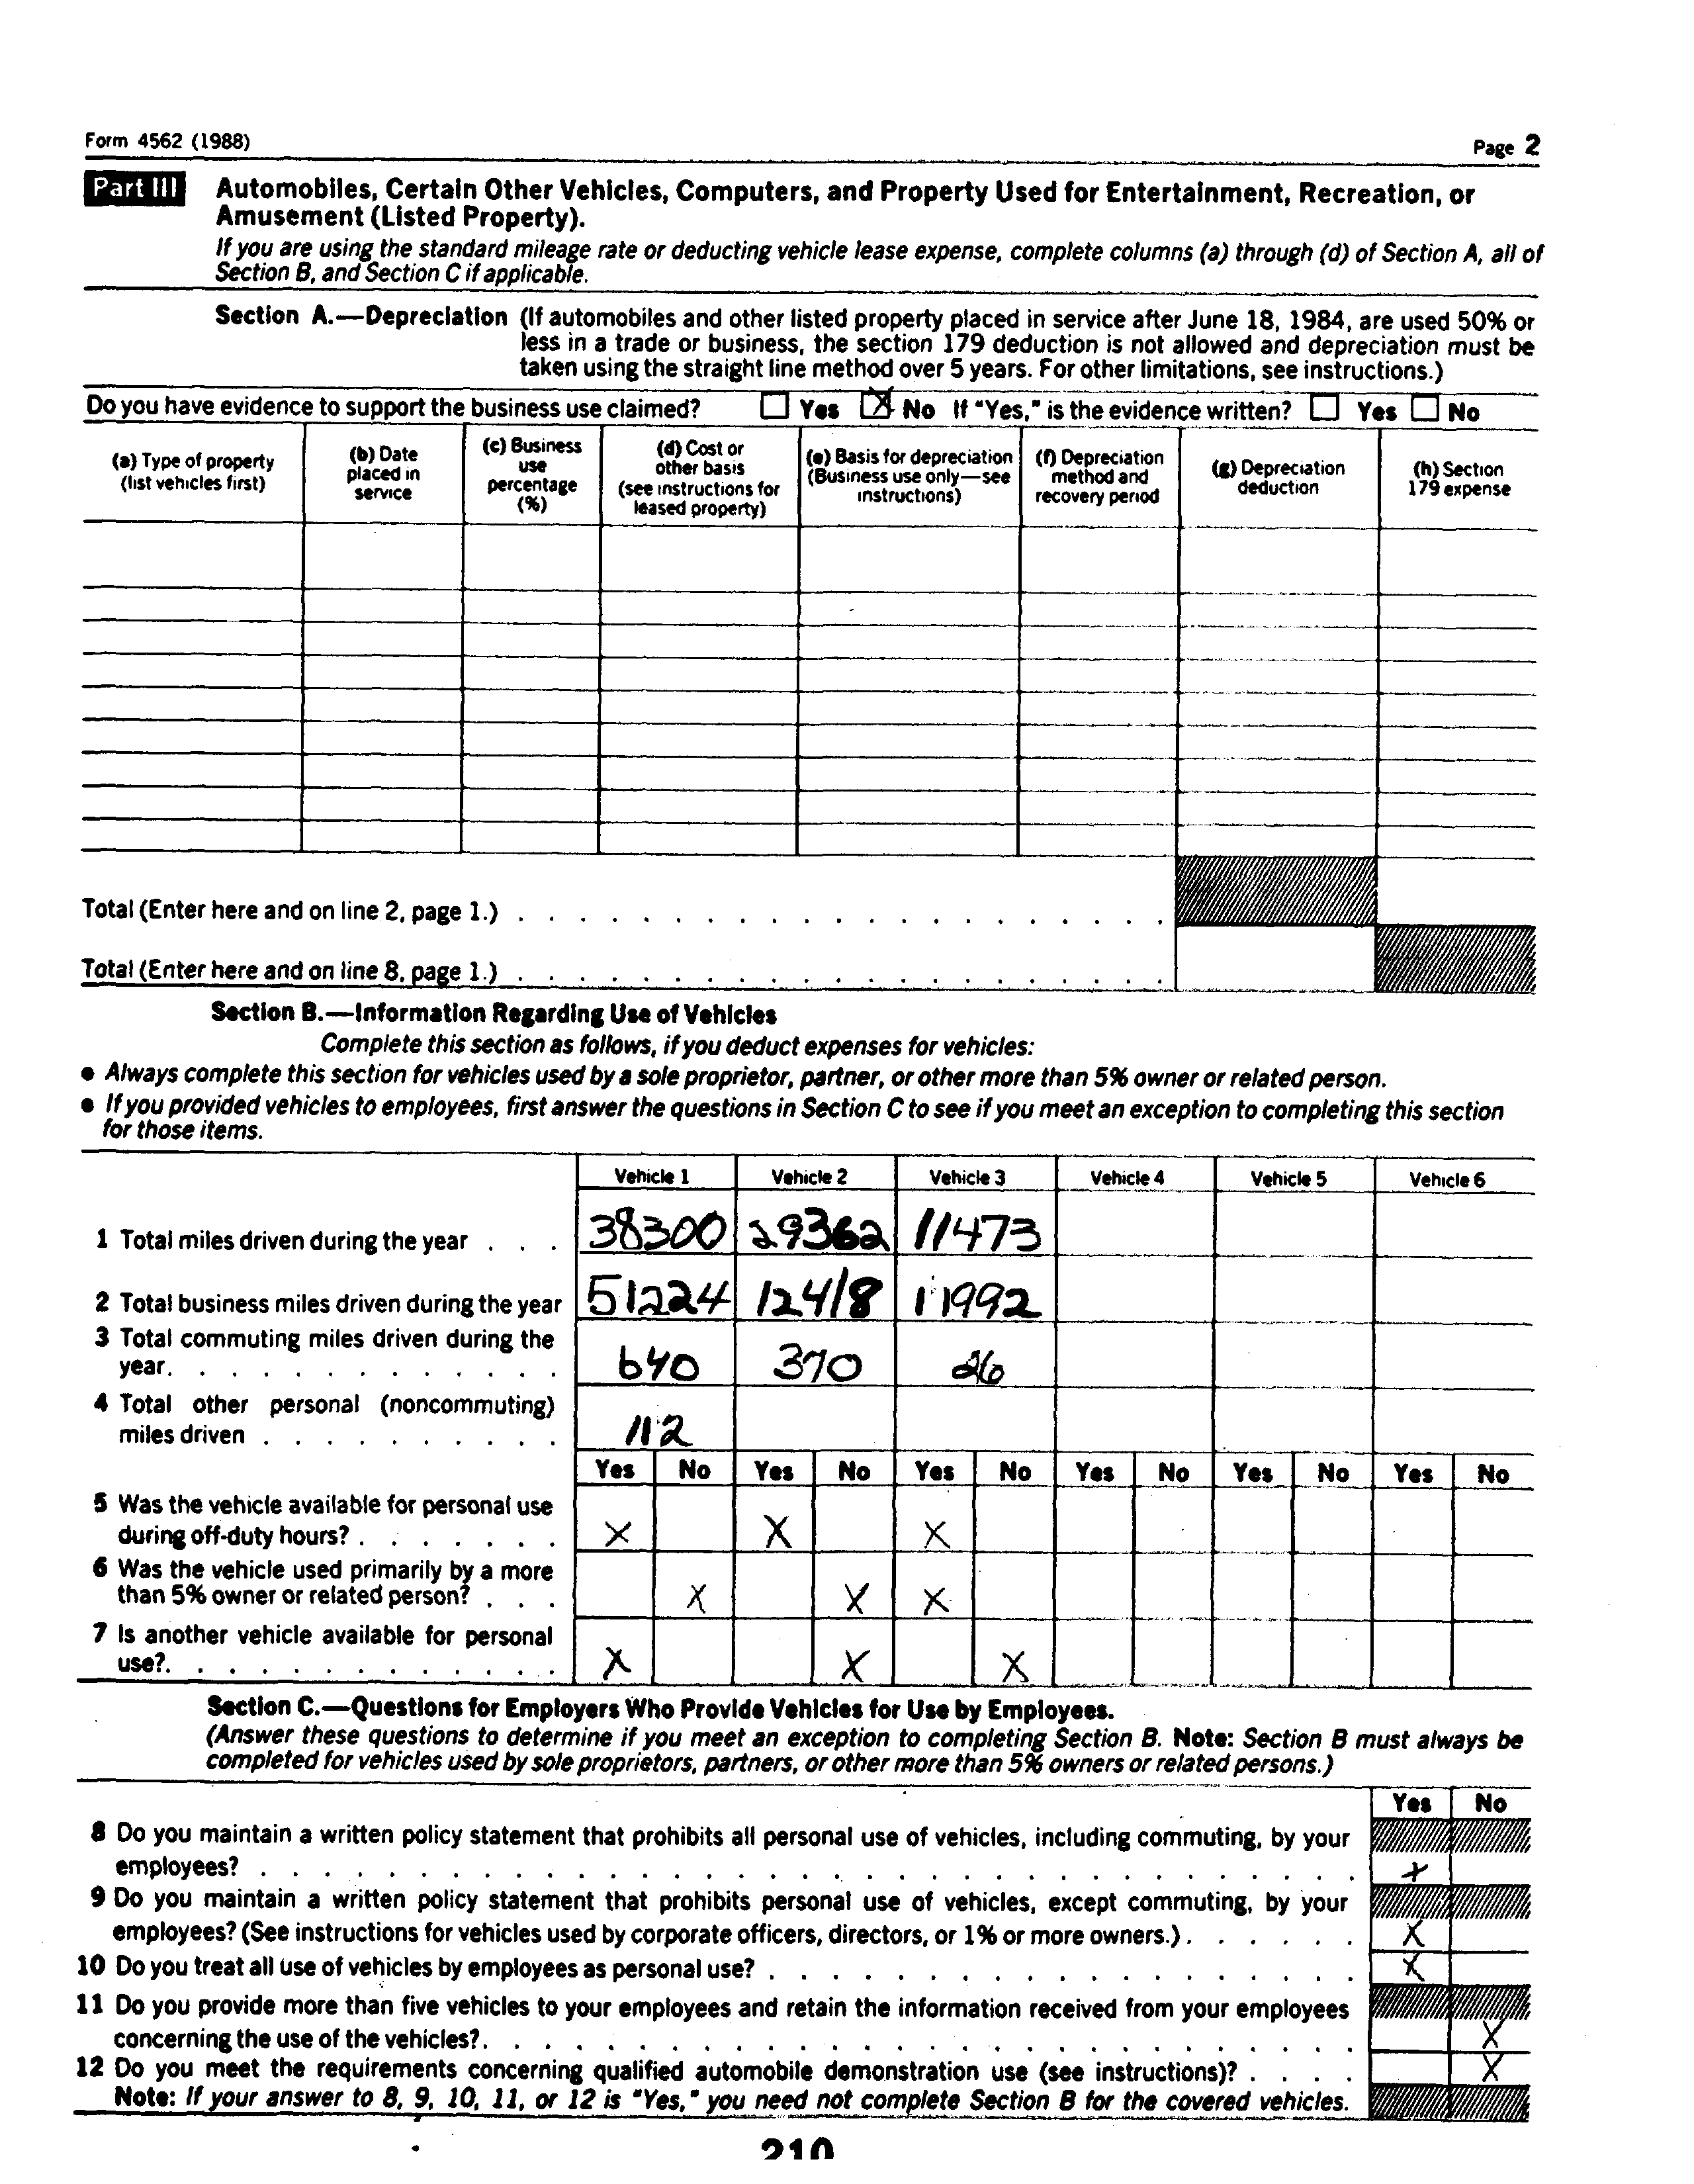 Form 4562 (1988)
Page 2
Part III
Automobiles, Certain Other Vehicles, Computers, and Property Used for Entertainment, Recreation, or
Amusement (Listed Property).
If you are using the standard mileage rate or deducting vehicle lease expense, complete columns (a) through (d) of Section A, all of
Section B, and Section C if applicable.
Section A.—Depreciation (If automobiles and other listed property placed in service after June 18, 1984, are used 50% or
less in a trade or business, the section 179 deduction is not allowed and depreciation must be
taken using the straight line method over 5 years. For other limitations, see instructions.)
Do you have evidence to support the business use claimed? Yes X No If "Yes," is the evidence written? Yes No
(a) Type of property
(list vehicles first)
(b) Date
placed in
service
(c) Business
use
percentage
(%)
(d) Cost or
other basis
(see instructions for
leased property)
(e) Basis for depreciation
(Business use only—see
instructions)
(f) Depreciation
method and
recovery period
(g) Depreciation
deduction
(h) Section
179 expense
Total (Enter here and on line 2, page 1.) . . . . . . . . . . . . . . . . . . . . .
Total (Enter here and on line 8, page 1.) . . . . . . . . . . . . . . . . . . . . .
Section B.—Information Regarding Use of Vehicles
Complete this section as follows, if you deduct expenses for vehicles:
● Always complete this section for vehicles used by a sole proprietor, partner, or other more than 5% owner or related person.
● If you provided vehicles to employees, first answer the questions in Section C to see if you meet an exception to completing this section
for those items.
Vehicle 1 Vehicle 2 Vehicle 3 Vehicle 4 Vehicle 5 Vehicle 6
1 Total miles driven during the year . . . 38300 29362 11473
2 Total business miles driven during the year 51224 12418 11992
3 Total commuting miles driven during the
year. . . . . . . . . . . . . 640 370 26
4 Total other personal (noncommuting)
miles driven . . . . . . . . . . 112
Yes No Yes No Yes No Yes No Yes No Yes No
5 Was the vehicle available for personal use
during off-duty hours? . . . . . . . X X X
6 Was the vehicle used primarily by a more
than 5% owner or related person? . . . X X X
7 Is another vehicle available for personal
use?. . . . . . . . . . . . . X X X
Section C.—Questions for Employers Who Provide Vehicles for Use by Employees.
(Answer these questions to determine if you meet an exception to completing Section B. Note: Section B must always be
completed for vehicles used by sole proprietors, partners, or other more than 5% owners or related persons.)
Yes No
8 Do you maintain a written policy statement that prohibits all personal use of vehicles, including commuting, by your
employees? . . . . . . . . . . . . . . . . . . . . . . . . . . . . . . . . . . X
9 Do you maintain a written policy statement that prohibits personal use of vehicles, except commuting, by your
employees? (See instructions for vehicles used by corporate officers, directors, or 1% or more owners.) . . . . . . X
10 Do you treat all use of vehicles by employees as personal use? . . . . . . . . . . . . . . . . . . . X
11 Do you provide more than five vehicles to your employees and retain the information received from your employees
concerning the use of the vehicles?. . . . . . . . . . . . . . . . . . . . . . . . . . . . X
12 Do you meet the requirements concerning qualified automobile demonstration use (see instructions)? . . . . X
Note: If your answer to 8, 9, 10, 11, or 12 is "Yes," you need not complete Section B for the covered vehicles.
210